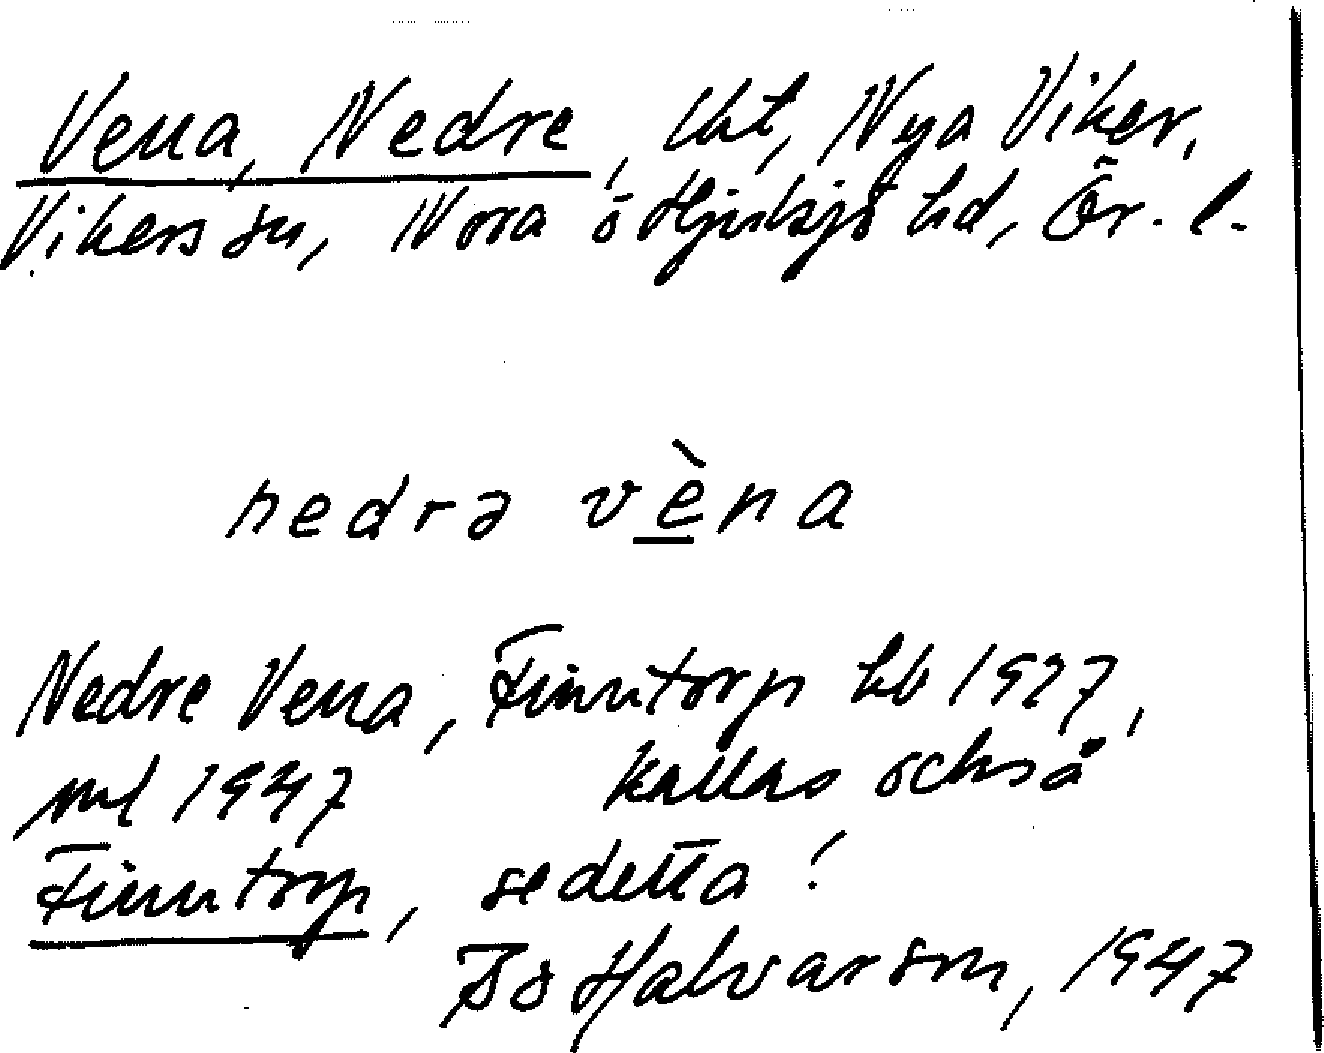 Vena, Nedre, lht, Nya Viker,
Vikers sn, Nora o Hjulsjö hd, Ör. l.
nedrə vèna
Nedre Vena, Finntorp hb 1927,
ml 1947 kallas också
Finntorp, se detta!
Bo Halvarson, 1947